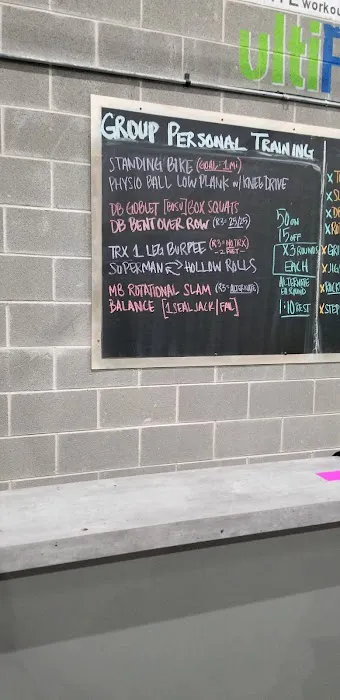 WORKOU
ultiF
GROUP PERSONAL TRAINING
STANDING BIKE (GOAL = 1 MI)
PHYSIO BALL LOW PLANK w/ KNEE DRIVE
DB GOBLET [BOSU] BOX SQUATS
DB BENT OVER ROW (R3= 25/25)
TRX 1 LEG BURPEE (R3= NO TRX)
SUPERMAN HOLLOW ROLLS
MB ROTATIONAL SLAM (R3= ALTERNATE)
BALANCE [1 SEAL JACK/
50 ON
15 OFF
X3 ROUNDS
EACH
ALTERNATE
1:10 REST